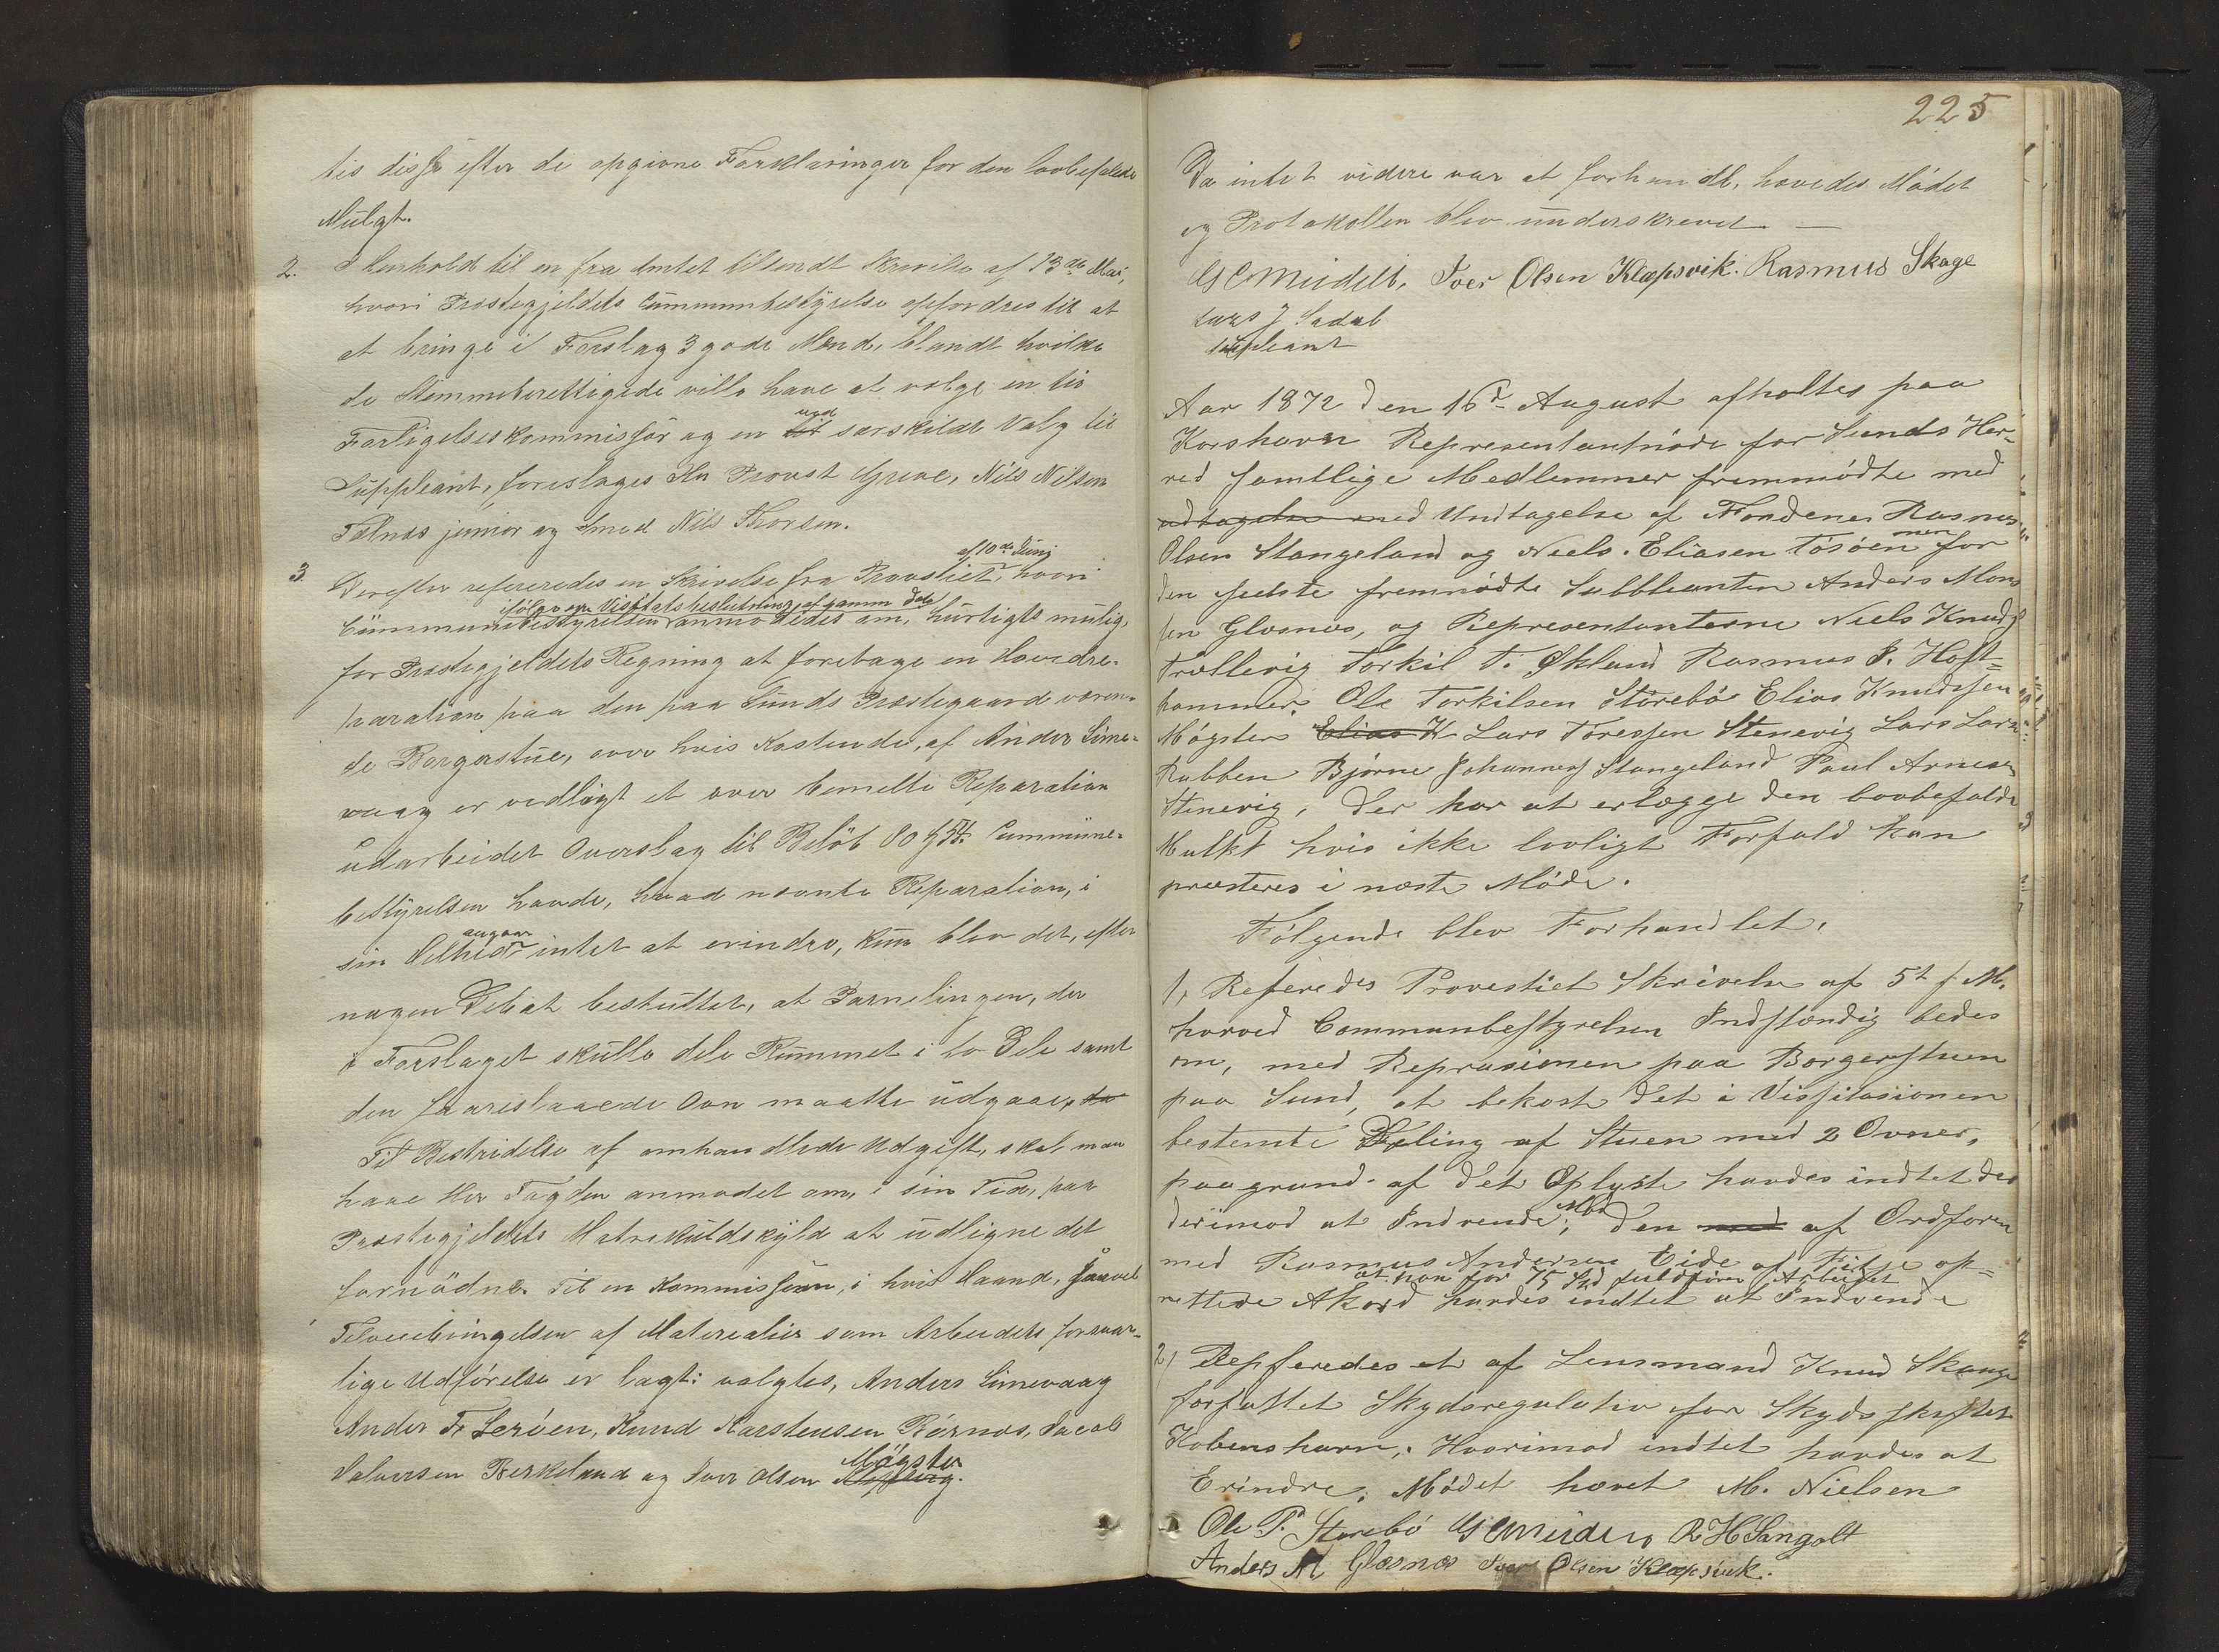 tis disse efter de opgivne Forklaringer for den lovbefalede
Mulgt.
2. I Henhold til en fra Amtet tilsendt Skrivelse af 13de Mai,
hvori Præstegjeldets Cummunebestyrelse opfordres til at
at bringe i Forslag 3 gode Mænd, blandt hvilke
de Stemmeberettigede ville have at vælge en til
Forligelseskommissær og en ved særskildt Valg til
Suppleant, foreslages Hr Provst Greve, Nils Nilsen
Tælnæs junior og Smed Nils Thorsen.
3. Derefter refereredes en Skrivelse fra Provstiet, af 10de Juni hvori
Cummunebestyrelsen ifølge Visitatsbeslutning af samme Dato anmodedes om, hurtigts mulig,
for Præstegjeldets Regning at foretage en Hovedre-
paration paa den paa Sunds Præstegaard væren-
de Borgerstue, over hvis Kostende, af Anders Sime-
vaag er vedlagt et over bemelte Reparation
udarbeidet Overslag til Beløb 80 Cummune-
bestyrelsen havde, hvad nævnte Reparation, i
sin Helhed angaar intet at erindre, kun blev det, efter
nogen Debat besluttet, at Parnelingen, der
i Forslaget skulle dele Rummet i to Dele samt
den foreslaaede Ovn maatte udgaae, da
Til Bestridelse af omhandlede Udgift, skal man
have Her Fogden anmodet om, i sin Tid, paa
Præstegjeldets Matrikuldskyld at udligne det
fornødne. Til en Kommission, i hvis Haand, saavel
Tilveiebringelsen af Materialier som Arbeidets forsvar-
lige Udførelse er lagt: valgtes, Anders Simevaag
Anders Fr Lerøen, Knud Karstensen Rørnæs, Jacob
Salversen Berkeland og Iver Olsen Møgster.
225
Da intet videre var at forhandl, hævedes Mødet
og Protokollen blev underskrevet. —
G C Meidell, Iver Olsen Klæpsvik. Rasmus Skage
Lars J Sadal
supleant
Aar 1872 den 16d August afholtes paa
Korshavn Representantmøde for Sunds Her-
red samtlige Medlemmer fremmødte med
udtagelse med Undtagelse af Formænnen Rasmus
Olsen Stangeland og Niels Eliasen Tøsøen for
den sidste fremmødte Subbleanten Anders Mons
sen Glæsnes, og Representanterne Niels Knuds
Trællevig Torkil T. Økland Rasmus P. Hoft-
hammer Ole Torkilsen Storebø Elias Knudssen
Møgster Elias K Lars Toressen Stenevig Lars Lars
Rabben Bjørne Johanness Stangeland Paul Arnesen
Stenevig, der har at erlægge den lovbefalde
Mulkt hvis ikke lovligt Forfald kan
præsteres i neste Møde.
Følgende blev Forhandlet.
1, Referedes Provestiet Skrivelse af 5t f. M.
hvorved Communbestyrelsen Indstændig bedes
om, med Reprasionen paa Borgerstuen
paa Sund, at bekoste det i Vissitasionen
bestemte Deling af Stuen med 2 Ovner,
paagrund af det Oplyste havdes indtet der
derimod at Indvende; Mod den med af Ordføren
med Rasmus Andersen Eide af Fitje op-
rettede Akord at han for 75 Spd fuldfører Arbeidet havdes indtet at Indvende
2, Repferedes et af Lensmand Knud Skauge
forfattet Skydsregulativ for Skydsskiftet
Kobenshavn, Hvorimod indtet havdes at
Erindre. Mødet hævet M. Nielsen
Ole T. Storebø G C Meidell R H Sangolt
Anders M Glæsnæs Iver Olsen Klæpsvik.